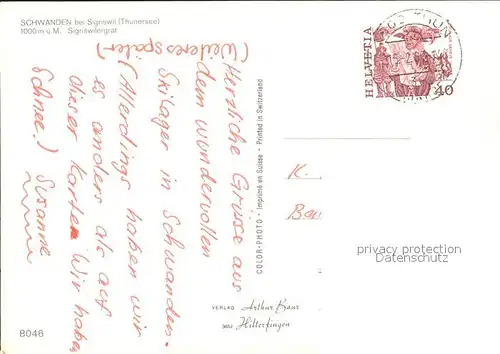 SCHWANDEN bei Sigriswil (Thunersee)
1000 m ü.M. Sigriswilergrat
(Weiteres später)
Herzliche Grüsse aus
dem wundervollen
Skilager in Schwanden.
(Allerdings haben wir
es anders als auf
dieser Karte. Wir haben
Schnee!) Susanne
8046
COLOR-PHOTO - Imprimé en Suisse - Printed in Switzerland
VERLAG Arthur Baur
Hilterfingen
HELVETIA
40
THUN
K.
privacy protection
Datenschutz